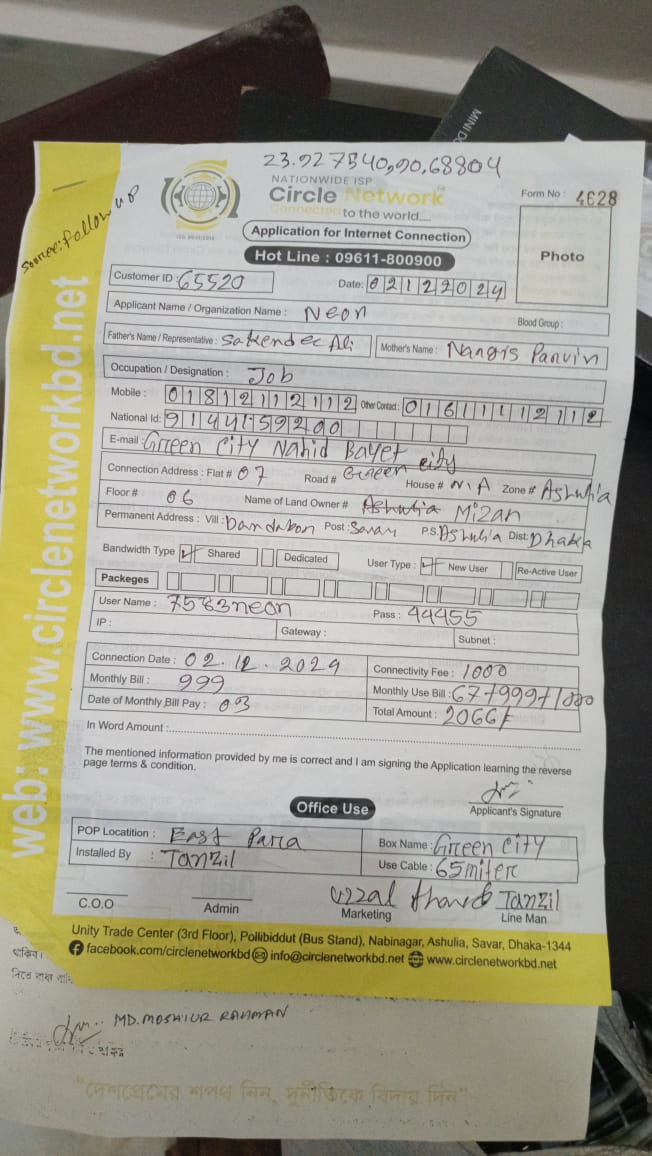 MINI DO
23.927540,90.68804
Source: Follow up
NATIONWIDE ISP
Circle Network
Connected to the world....
Form No : 4628
Application for Internet Connection
Hot Line : 09611-800900
Photo
Customer ID : 65520
Date: 02122024
Applicant Name / Organization Name : Neon
Blood Group :
Father's Name / Representative : Sakender Ali
Mother's Name : Nangis Panvin
Occupation / Designation : Job
Mobile : 01812112112 Other Contact : 01611112112
National Id: 9144159200
E-mail : Green City Nahid Bayer city
Connection Address : Flat # 07 Road # Green city House # N.A Zone # Ashulia
Floor # 06 Name of Land Owner # Ashulia Mizan
Permanent Address : Vill : Dandabon Post : Savar P.S Ashulia Dist: Dhaka
Bandwidth Type Shared Dedicated User Type : New User Re-Active User
Packeges
User Name : 7583neon Pass : 44455
IP : Gateway : Subnet :
Connection Date : 02.12.2024 Connectivity Fee : 1000
Monthly Bill : 999 Monthly Use Bill : 67+999+1000
Date of Monthly Bill Pay : 03 Total Amount : 2066/
In Word Amount :
The mentioned information provided by me is correct and I am signing the Application learning the reverse
page terms & condition.
Applicant's Signature
Office Use
POP Locatition : East Para Box Name : Green City
Installed By : Tanzil Use Cable : 65miter
Uzzal Tanzil
C.O.O Admin Marketing Line Man
Unity Trade Center (3rd Floor), Pollibiddut (Bus Stand), Nabinagar, Ashulia, Savar, Dhaka-1344
facebook.com/circlenetworkbd info@circlenetworkbd.net www.circlenetworkbd.net
web: www.circlenetworkbd.net
থাকিব।
MD. MOSHIUR RAHMAN
"দেশপ্রেমের শপথ নিন, দুর্নীতিকে বিদায় দিন"